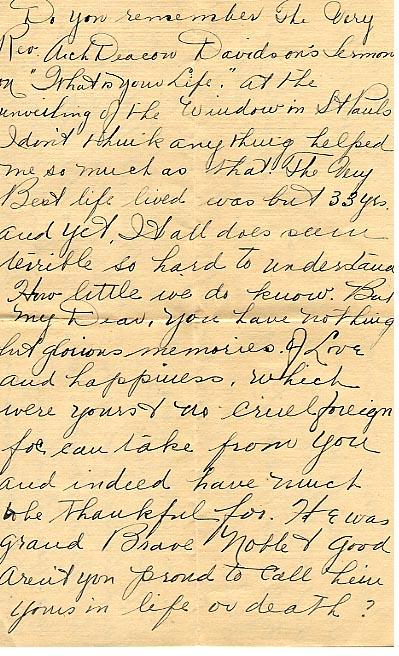 Do you remember The Very
Rev. ArchDeacon Davidson's Sermon
on "What is your Life." at the
unveiling of the Window in St Pauls
I don't think anything helped
me so much as that. The Very
Best life lived was but 33 yrs.
and yet, It all does seem
terrible so hard to understand
How little we do know. But
my Dear, you have nothing
but glorious memories. Of Love
and happiness, which
were yours & no cruel foreign
foe can take from you
and indeed have much
to be thankful for. He was
grand Brave Noble & Good
Aren't you proud to call him
yours in life or death?